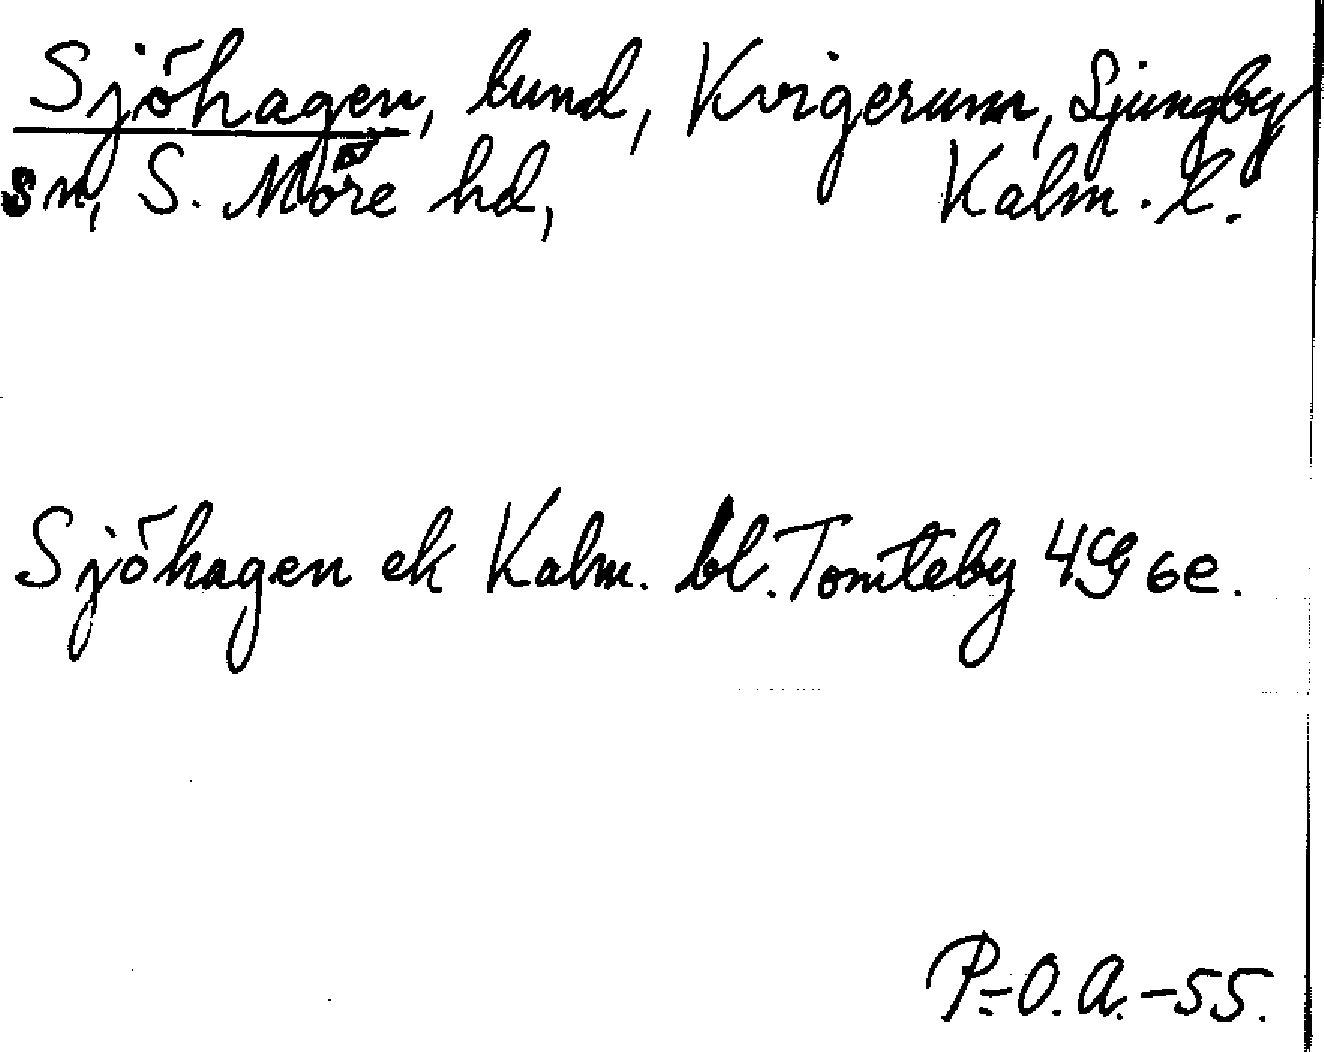 Sjöhagen, lund, Kvigerum, Ljungby
sn, S. Möre hd, Kalm. l.
Sjöhagen ek Kalm. bl. Tomteby 4G 6e.
P.-O. A. -55.